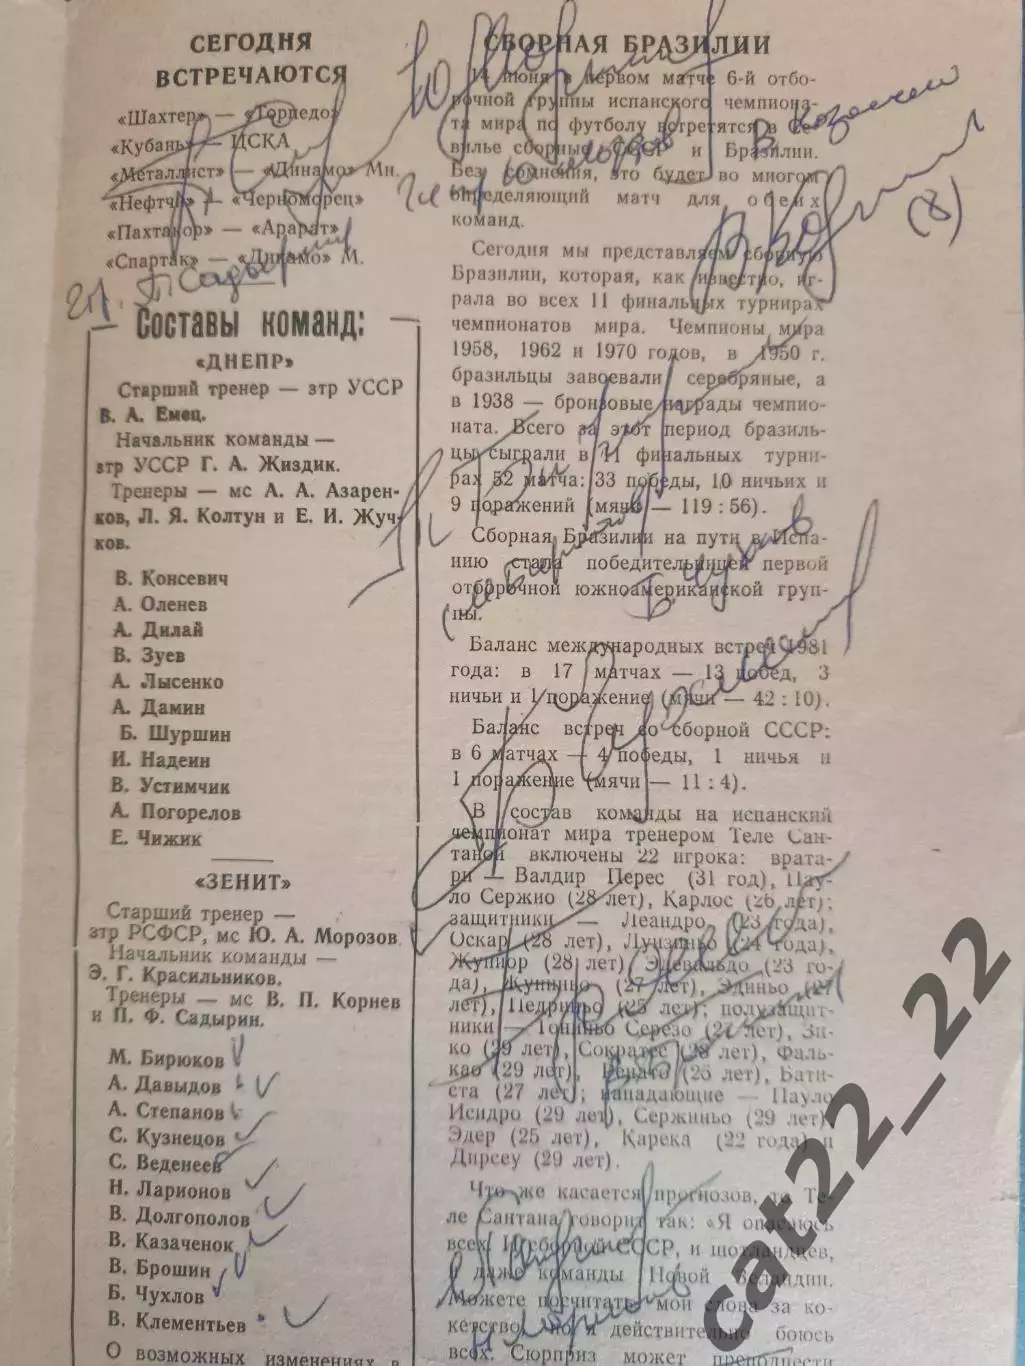 СЕГОДНЯ
ВСТРЕЧАЮТСЯ
«Шахтер» — «Торпедо»
«Кубань» — ЦСКА
«Металлист» — «Динамо» Мн.
«Нефтчи» — «Черноморец»
«Пахтакор» — «Арарат»
«Спартак» — «Динамо» М.
П Садырин
Составы команд:
«ДНЕПР»
Старший тренер — зтр УССР
В. А. Емец.
Начальник команды —
зтр УССР Г. А. Жиздик.
Тренеры — мс А. А. Азарен-
ков, Л. Я. Колтун и Е. И. Жуч-
ков.
В. Консевич
А. Оленев
А. Дилай
В. Зуев
А. Лысенко
А. Дамин
Б. Шуршин
И. Надеин
В. Устимчик
А. Погорелов
Е. Чижик
«ЗЕНИТ»
Старший тренер —
зтр РСФСР, мс Ю. А. Морозов.
Начальник команды —
Э. Г. Красильников.
Тренеры — мс В. П. Корнев
и П. Ф. Садырин.
М. Бирюков
А. Давыдов
А. Степанов
С. Кузнецов
С. Веденеев
Н. Ларионов
В. Долгополов
В. Казаченок
В. Брошин
Б. Чухлов
В. Клементьев
О возможных изменениях в
СБОРНАЯ БРАЗИЛИИ
14 июня в первом матче 6-й отбо-
рочной группы испанского чемпиона-
та мира по футболу встретятся в Се-
вилье сборные СССР и Бразилии.
Без сомнения, это будет во многом
определяющий матч для обеих
команд.
Сегодня мы представляем сборную
Бразилии, которая, как известно, иг-
рала во всех 11 финальных турнирах
чемпионатов мира. Чемпионы мира
1958, 1962 и 1970 годов, в 1950 г.
бразильцы завоевали серебряные, а
в 1938 — бронзовые награды чемпио-
ната. Всего за этот период бразиль-
цы сыграли в 11 финальных турни-
рах 52 матча: 33 победы, 10 ничьих и
9 поражений (мячи — 119 : 56).
Сборная Бразилии на пути в Испа-
нию стала победительницей первой
отборочной южноамериканской груп-
пы.
Б. Чухлов
Баланс международных встреч 1981
года: в 17 матчах — 13 побед, 3
ничьи и 1 поражение (мячи — 42 : 10).
Баланс встреч со сборной СССР:
в 6 матчах — 4 победы, 1 ничья и
1 поражение (мячи — 11 : 4).
В состав команды на испанский
чемпионат мира тренером Теле Сан-
таной включены 22 игрока: врата-
ри — Валдир Перес (31 год), Пау-
ло Сержио (28 лет), Карлос (26 лет);
защитники — Леандро (23 года),
Оскар (28 лет), Луизиньо (24 года),
Жуниор (28 лет), Эдевальдо (23 го-
да), Жуниньо (27 лет), Эдиньо (27
лет), Педриньо (25 лет); полузащит-
ники — Тониньо Серезо (27 лет), Зи-
ко (29 лет), Сократес (28 лет), Фаль-
као (29 лет), Ренато (25 лет), Бати-
ста (27 лет); нападающие — Пауло
Исидро (29 лет), Сержиньо (29 лет),
Эдер (25 лет), Карека (22 года) и
Дирсеу (29 лет).
Что же касается прогнозов, то Те-
ле Сантана говорит так: «Я опасаюсь
всех. И сборной СССР, и шотландцев,
и даже команды Новой Зеландии.
Можете посчитать мои слова за ко-
кетство, но я действительно боюсь
всех. Сюрприз может преподнести
(8)
cat22_22